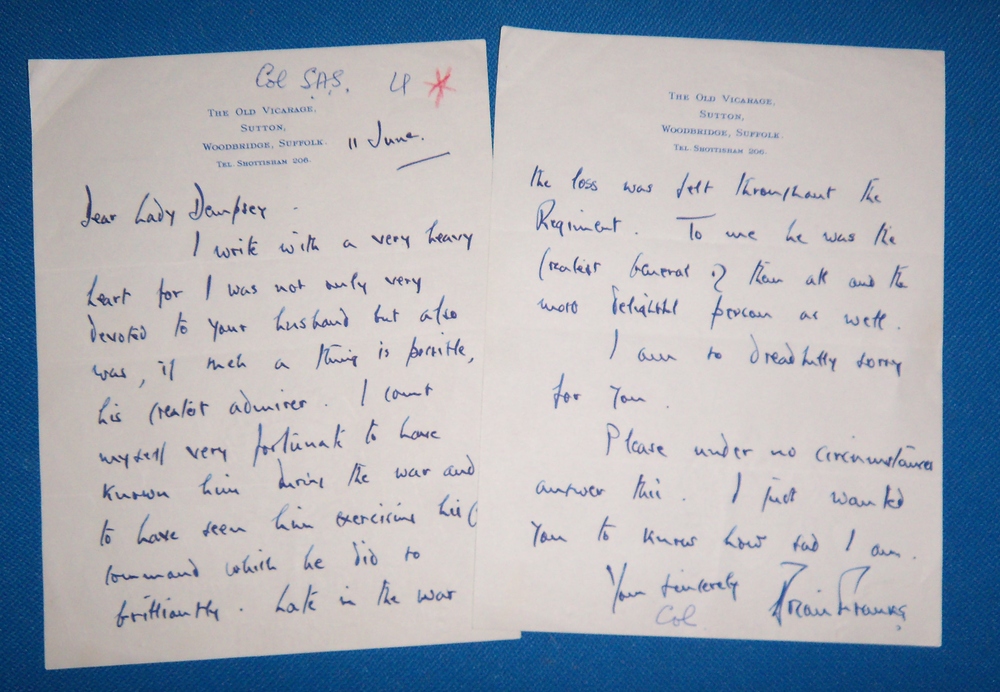 Col S.A.S. 4
THE OLD VICARAGE,
SUTTON,
WOODBRIDGE, SUFFOLK.
TEL SHOTTISHAM 206.
11 June.
Dear Lady Dempsey.
I write with a very heavy
heart for I was not only very
devoted to your husband but also
was, if such a thing is possible,
his greatest admirer. I count
myself very fortunate to have
known him during the war and
to have seen him exercising his
command which he did so
brilliantly. Late in the war
THE OLD VICARAGE,
SUTTON,
WOODBRIDGE, SUFFOLK.
TEL SHOTTISHAM 206.
the loss was felt throughout the
Regiment. To me he was the
greatest General of them all and the
most delightful person as well.
I am so dreadfully sorry
for you.
Please under no circumstances
answer this. I just wanted
you to know how sad I am.
Your sincerely
Brian Franks
Col.